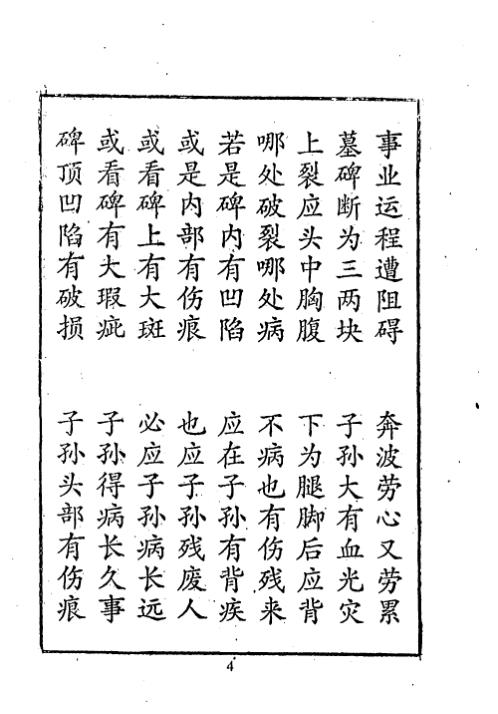 事业运程遭阻碍 奔波劳心又劳累
墓碑断为三两块 子孙大有血光灾
上裂应头中胸腹 下为腿脚后应背
哪处破裂哪处病 不病也有伤残来
若是碑内有凹陷 应在子孙有背疾
或是内部有伤痕 也应子孙残废人
或看碑上有大斑 必应子孙病长远
或看碑有大瑕疵 子孙得病长久事
碑顶凹陷有破损 子孙头部有伤痕
4